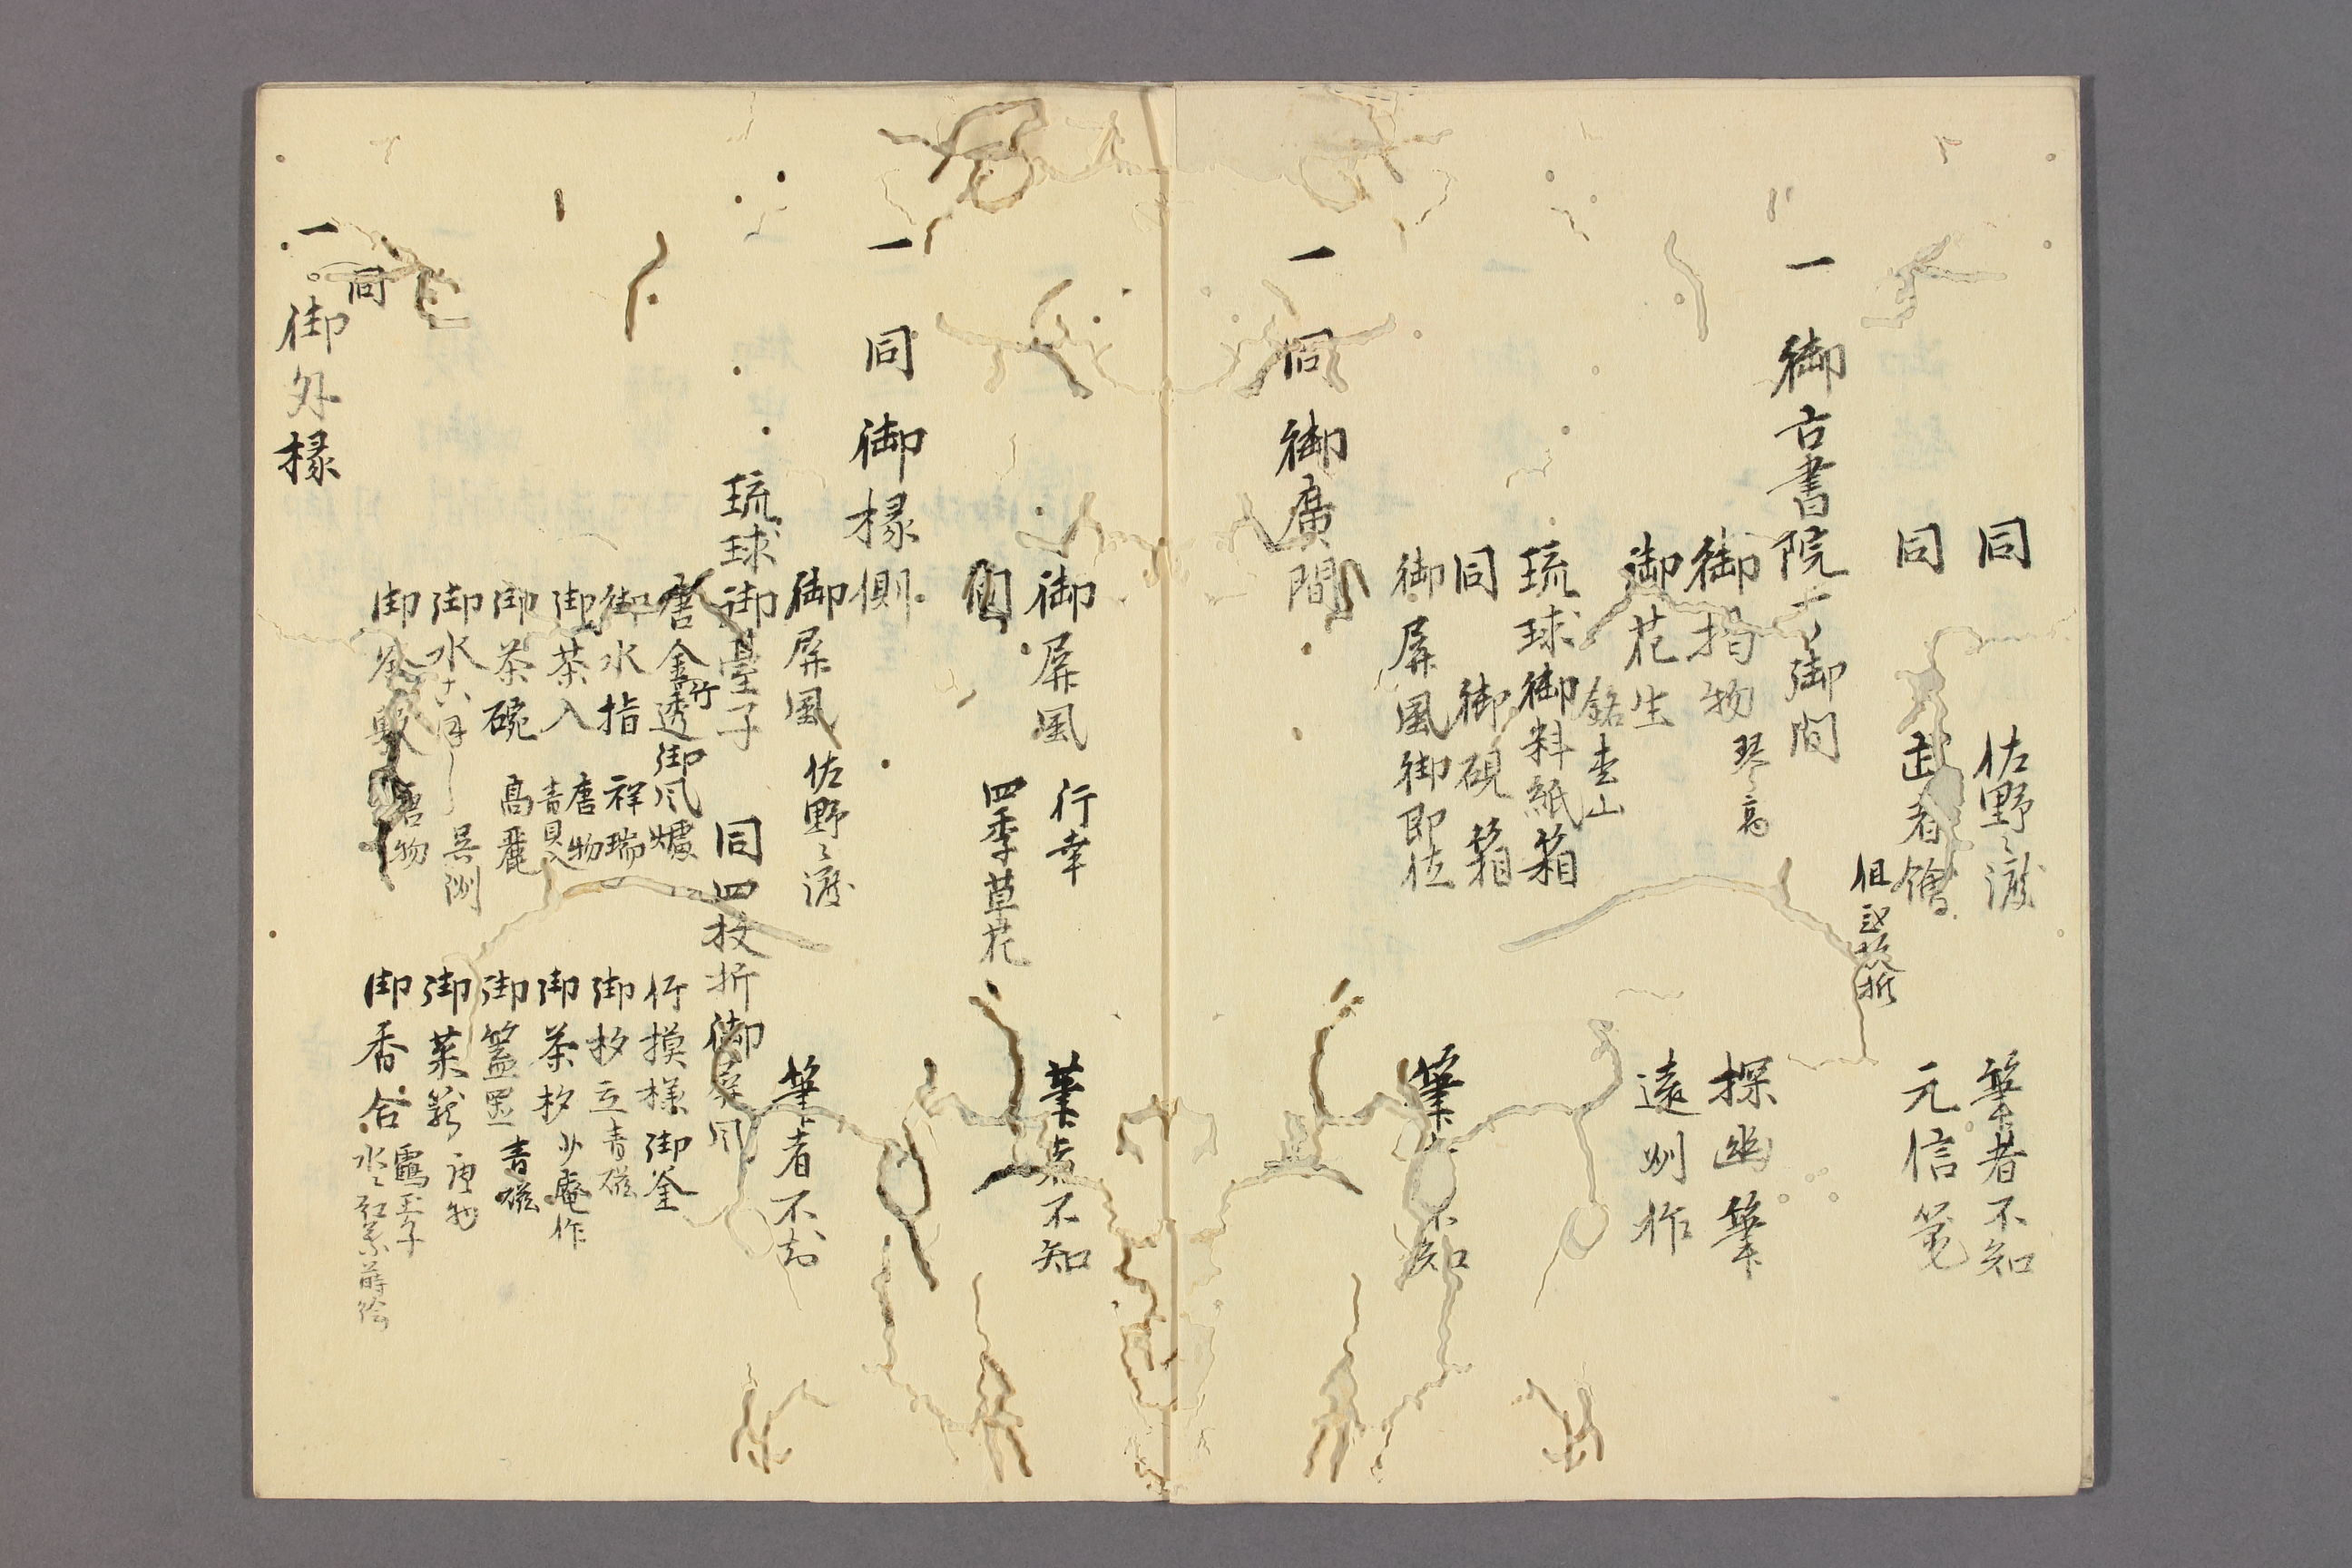 同 佐野ミ渡 筆者不知
同 武者繪 元信筆
但弐枚折
一 御古書院十ノ御間
御掛物 琴高 探幽筆
御花生 遠州作
銘 杢山
琉球御料紙箱
同 御硯箱
御屏風 御即位 筆 不知
一 同 御廣間
御屏風 行幸 筆者不知
同 四季草花
一 同 御椽側
御屏風 佐野ミ渡 筆者不知
琉球御臺子 同四枚折御屏風
唐金竹透御风爐 竹摸様御釜
御水指 祥瑞 御杓立 青磁
御茶入 唐物 青貝入 御茶杓 少庵作
御茶碗 高麗 御蓋置 青磁
御水 呉洲 御菜籠 唐物
御釜敷 唐物 御香合
同
一 御外椽